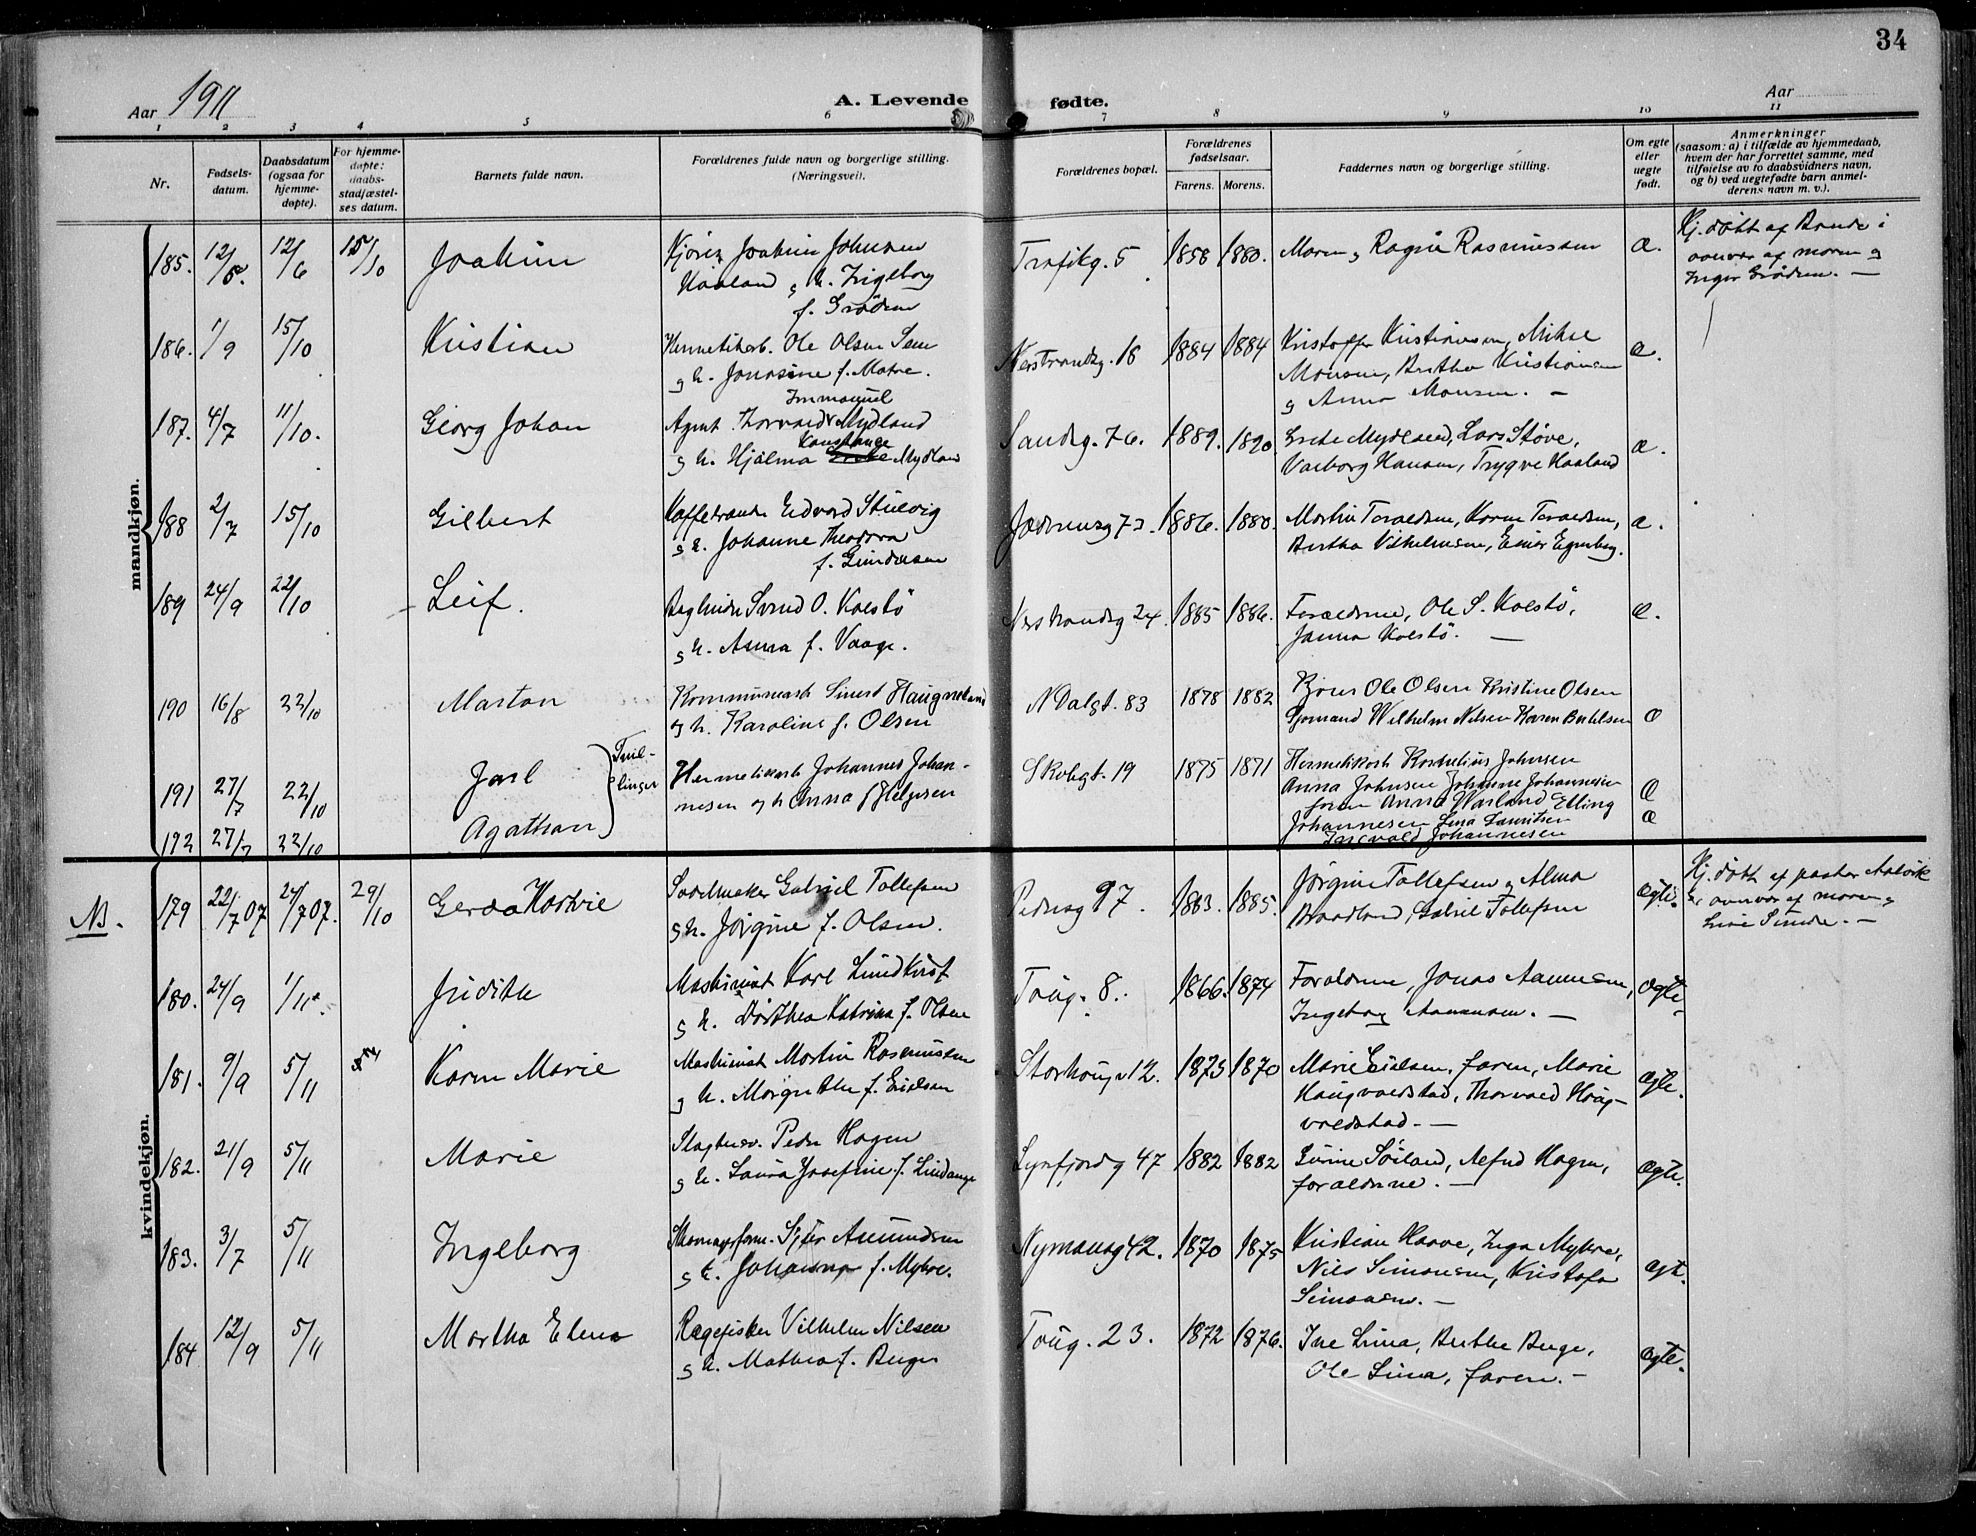 34
Aar 1911
A. Levende fødte.
Aar
1 2 3 4 5 6 7 8 9 10 11
Nr.
Fødsels-
datum.
Daabsdatum
(ogsaa for
hjemme-
døpte).
For hjemme-
døpte:
daabs-
stadfæstel-
ses datum.
Barnets fulde navn.
Forældrenes fulde navn og borgerlige stilling.
(Næringsvei).
Forældrenes bopæl.
Forældrenes
fødselsaar.
Farens. Morens.
Faddernes navn og borgerlige stilling.
Om egte
eller
uegte
født.
Anmerkninger
(saasom: a) i tilfælde av hjemmedaab,
hvem der har forrettet samme, med
tilføielse av to daabsvidners navn,
og b) ved uegtefødte barn anmel-
derens navn m. v.).
mandkjøn.
185. 12/8. 12/6 15/10 Joakim Joakim Johnsen Trafikg. 5 1858 1880. Maren og Ragna Rasmussen æ. Hj. døbt af
Haaland g h. Ingeborg af moren og
f. Grødem Inger Grødem. —
186. 1/9 15/10 Kristian Ole Olsen Sem Nerstrandsg. 18 1884 1884 Kristoffer Kristiansen, Mikal æ.
g h. Jonasine f. Matre. Monsen, Bertha Kristiansen
g Anna Monsen. —
Immanuel
187. 4/7 11/10. Georg Johan Agent Thorvald Mydland Sandsg. 76. 1889. 1890. Mydland, Lars Støve, æ.
Konstanse
g h. Hjalma Mydland Valborg Hansen, Trygve Haaland
188 2/7 15/10 Gilbert Edvard Stuevig 1886. 1880. Martin Toraldsen, Karen Toraldsen, æ.
g h. Johanne Theodora Bertha Vilhelmsen, Egenberg.
f. Gundersen
189 24/9 22/10 Leif. Svend O. Kolstø Nerstrandsg 24. 1885 1886. Forældrene, Ole S. Kolstø, æ.
g h. Anna f. Vaage. Janna Kolstø. —
190 16/8 22/10 Marton Kommunearb Sivert Haugneland N Dalgt. 83 1878 1882 Ole Olsen Kristine Olsen
og h. Karoline f. Olsen Sjømand Wilhelm Nilsen Karen Bertelsen Æ
191 27/7 22/10 Jarl Tvil-
linger Hermetikarb Johannes Johan- Skolegt. 19 1875 1871 Hermetikarb Kornelius Johnsen
nesen og h Anna f Helgesen Anna Johnsen Johanne Johannesen Æ
faren Anna Warland Elling
192 27/7 22/10 Agathon Johannesen Lina Lauritsen Æ
Ingvald Johannesen
kvindekjøn.
NB.
179 22/7 07 24/7 07. 29/10 Gerda Hartvie Sadelmaker Gabriel Tollefsen Pedersg 97. 1883. 1885. Jørgine Tollefsen og Alma ægte. Hj. døbt af pastor
g h. Jørgine f. Olsen. Braadland, Gabriel Tollefsen af moren g
Line —
180. 24/9 1/11. Judith Maskinist Karl Lundkvist Toug. 8. 1866. 1874 Forældrene, Jonas Aanensen, ægte.
g h. Dorthea Katrina f. Olsen Ingeborg Aanensen. —
181. 9/9 5/11 Karen Marie Maskinist Martin Rasmussen Storhougv 12. 1873 1870 Marie Eielsen, faren, Marie ægte.
g h. Margrethe f. Eielsen Haugvaldstad, Thorvald Haug-
valdstad. —
182. 21/9 5/11 Marie Slagtersv. Peder Hagen Lysfjordg 47 1882 1882 Søiland, Alfred Hagen, ægte.
g h. Laura Josefine f. Lindanger forældrene. —
183. 3/7 5/11 Ingeborg Amundsen Nymansg 42. 1870 1875 Kristian Haave, Inga Myhre, ægt.
g h. Johanna f. Myhre. Nils Simonsen, Kristofa
Simonsen. —
184 12/9 5/11 Martha Elena Røgefisker Vilhelm Nilsen Toug. 23. 1872 1876. Ine Lima, Berthe Berge, ægte.
g h. Mathea f. Berge Ole Lima, faren. —